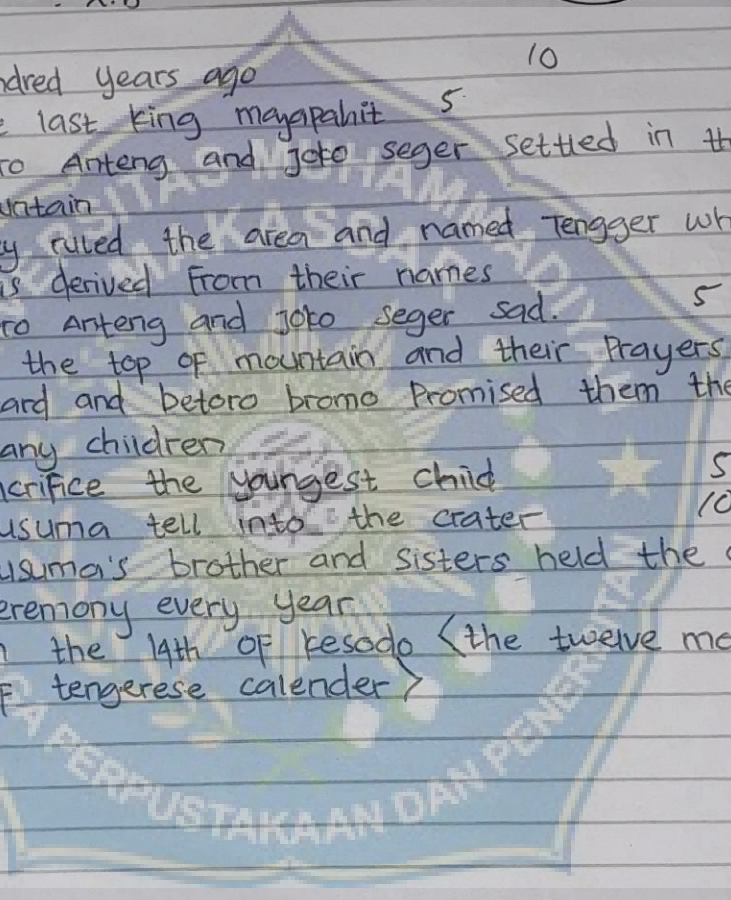 ndred years ago 10
e last king mayapahit 5
ro Anteng and joko seger settled in th
untain
ey ruled the area and named Tengger wh
is derived from their names
ro Anteng and joko seger sad. 5
the top of mountain and their Prayers
ard and betoro bromo Promised them the
any children
acrifice the youngest child 5
usuma tell into the crater 10
usuma's brother and sisters held the
eremony every year
n the 14th of kesodo <the twelve mo
F tengerese calender>
SITAS MUHAMMADIY
MAKASSAR
GA PERPUSTAKAAN DAN PENERBITAN